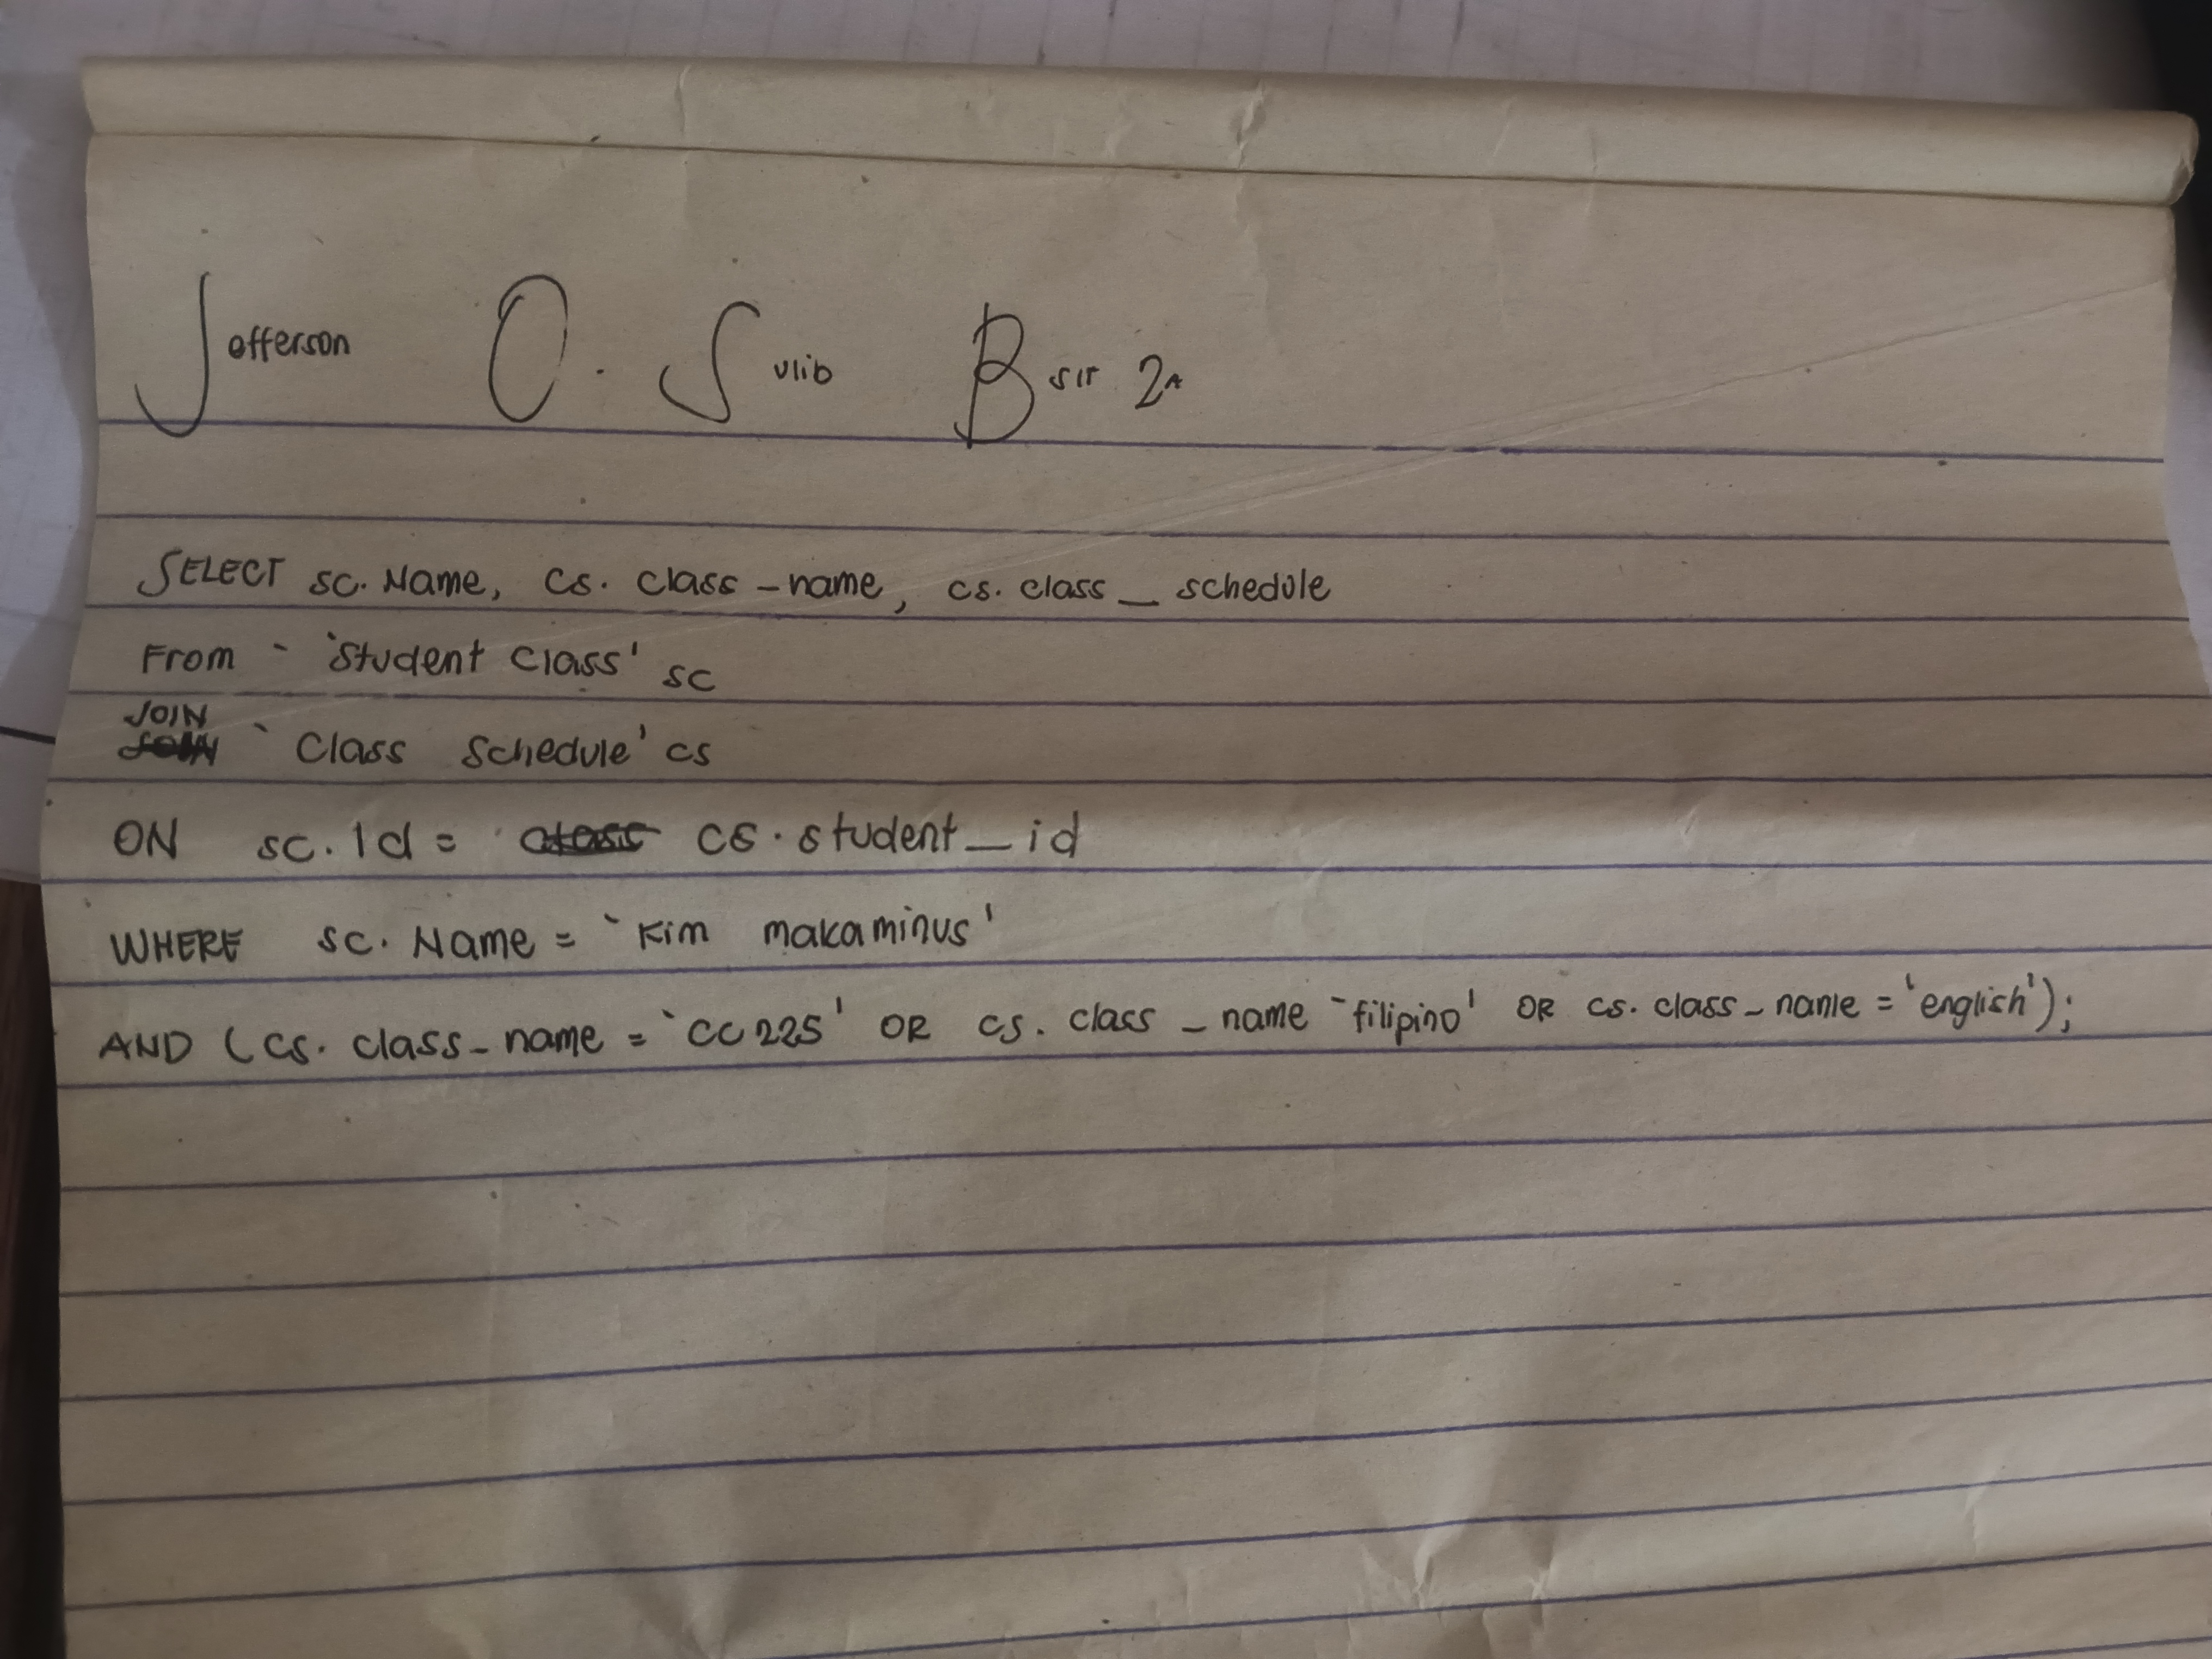 Jefferson O. Sulib Bsit 2A
SELECT sc. Name, cs. class_name, cs. class_schedule
From - `Student Class' sc
JOIN
`Class Schedule' cs
ON sc. Id = cs. student_id
WHERE sc. Name = `Kim makaminus'
AND (cs. class_name = `CC225' OR cs. class_name `filipino' OR cs. class_name = 'english');